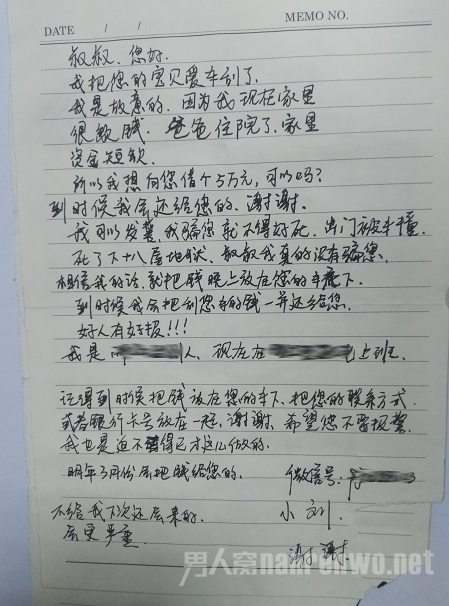 DATE / / MEMO NO.
叔叔、您好.
我把您的宝贝爱车刮了.
我是故意的. 因为我现在家里
很缺钱. 爸爸住院了. 家里
资金短缺.
所以我想向您借个5万元, 可以吗?
到时候我会还给您的. 谢谢.
我可以发誓, 我骗您就不得好死. 出门被车撞.
死了下十八层地狱. 叔叔我真的没有骗您.
相信我的话. 就把钱晚上放在您的车底下.
到时候我会把刮您车的钱一并还给您.
好人有好报!!!
我是 人, 现在在 上班.
记得到时候把钱放在您的车下、把您的联系方式
或者银行卡号放在一起. 谢谢. 希望您不要报警.
我也是迫不得已才这么做的.
明年3月份会把钱给您的. 微信号:
不给我下次还会来的. 小刘.
会更严重. 谢谢.
男人窝nanrenwo.net